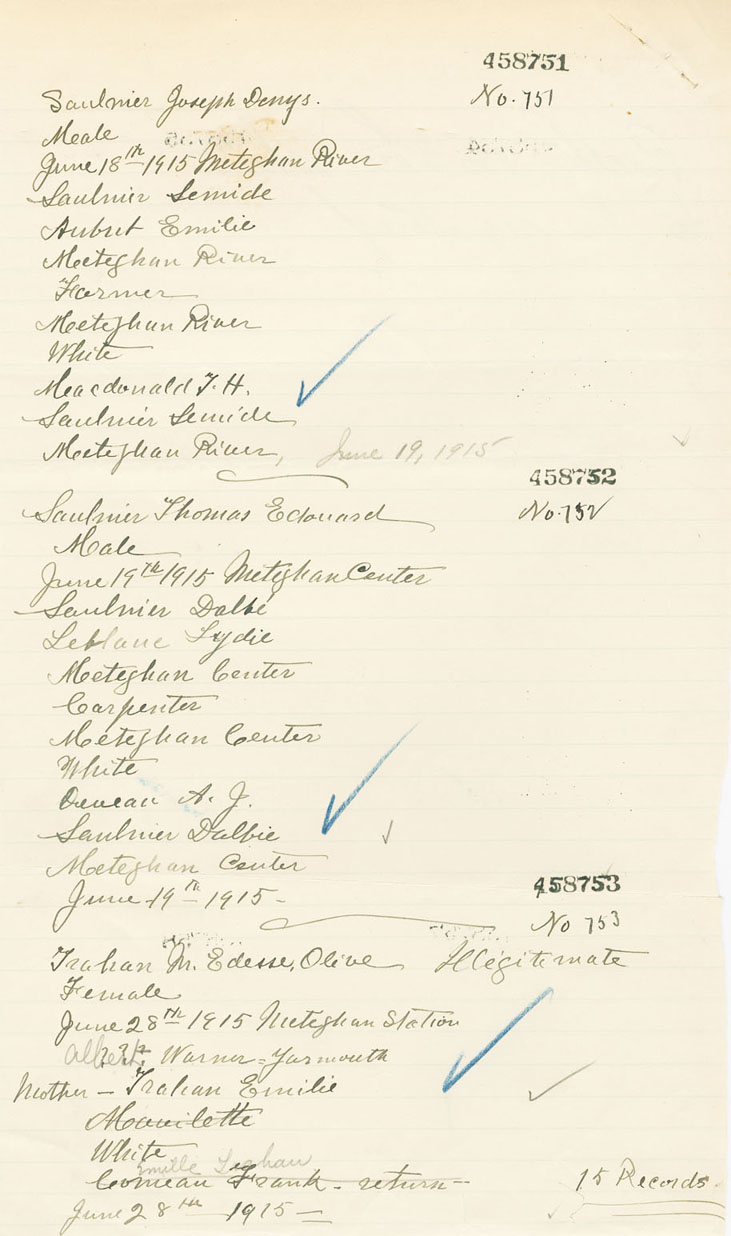 458751
Saulnier Joseph Denys. No. 751
Meale
June 18th 1915 Meteghan River
Saulnier Semide
Emilie
Meteghan River
Farmer
Meteghan River
White
Macdonald T. H.
Saulnier Semide
Meteghan River, June 19, 1915
458752
Saulnier Thomas Edouard No. 752
Male
June 19th 1915 Meteghan Center
Saulnier Dalbé
Leblanc Lydie
Meteghan Center
Carpenter
Meteghan Center
White
A. J.
Saulnier Dalbie
Meteghan Center
June 19th 1915-
458753
No 753
Trahan M. Edesse, Olive Illegitemate
Female
June 28th 1915 Meteghan Station
Albert Warner = Yarmouth
Mother - Trahan Emilie
White
Emilie Trahan
Comeau Frank - return - 15 Records.
June 28th 1915 -